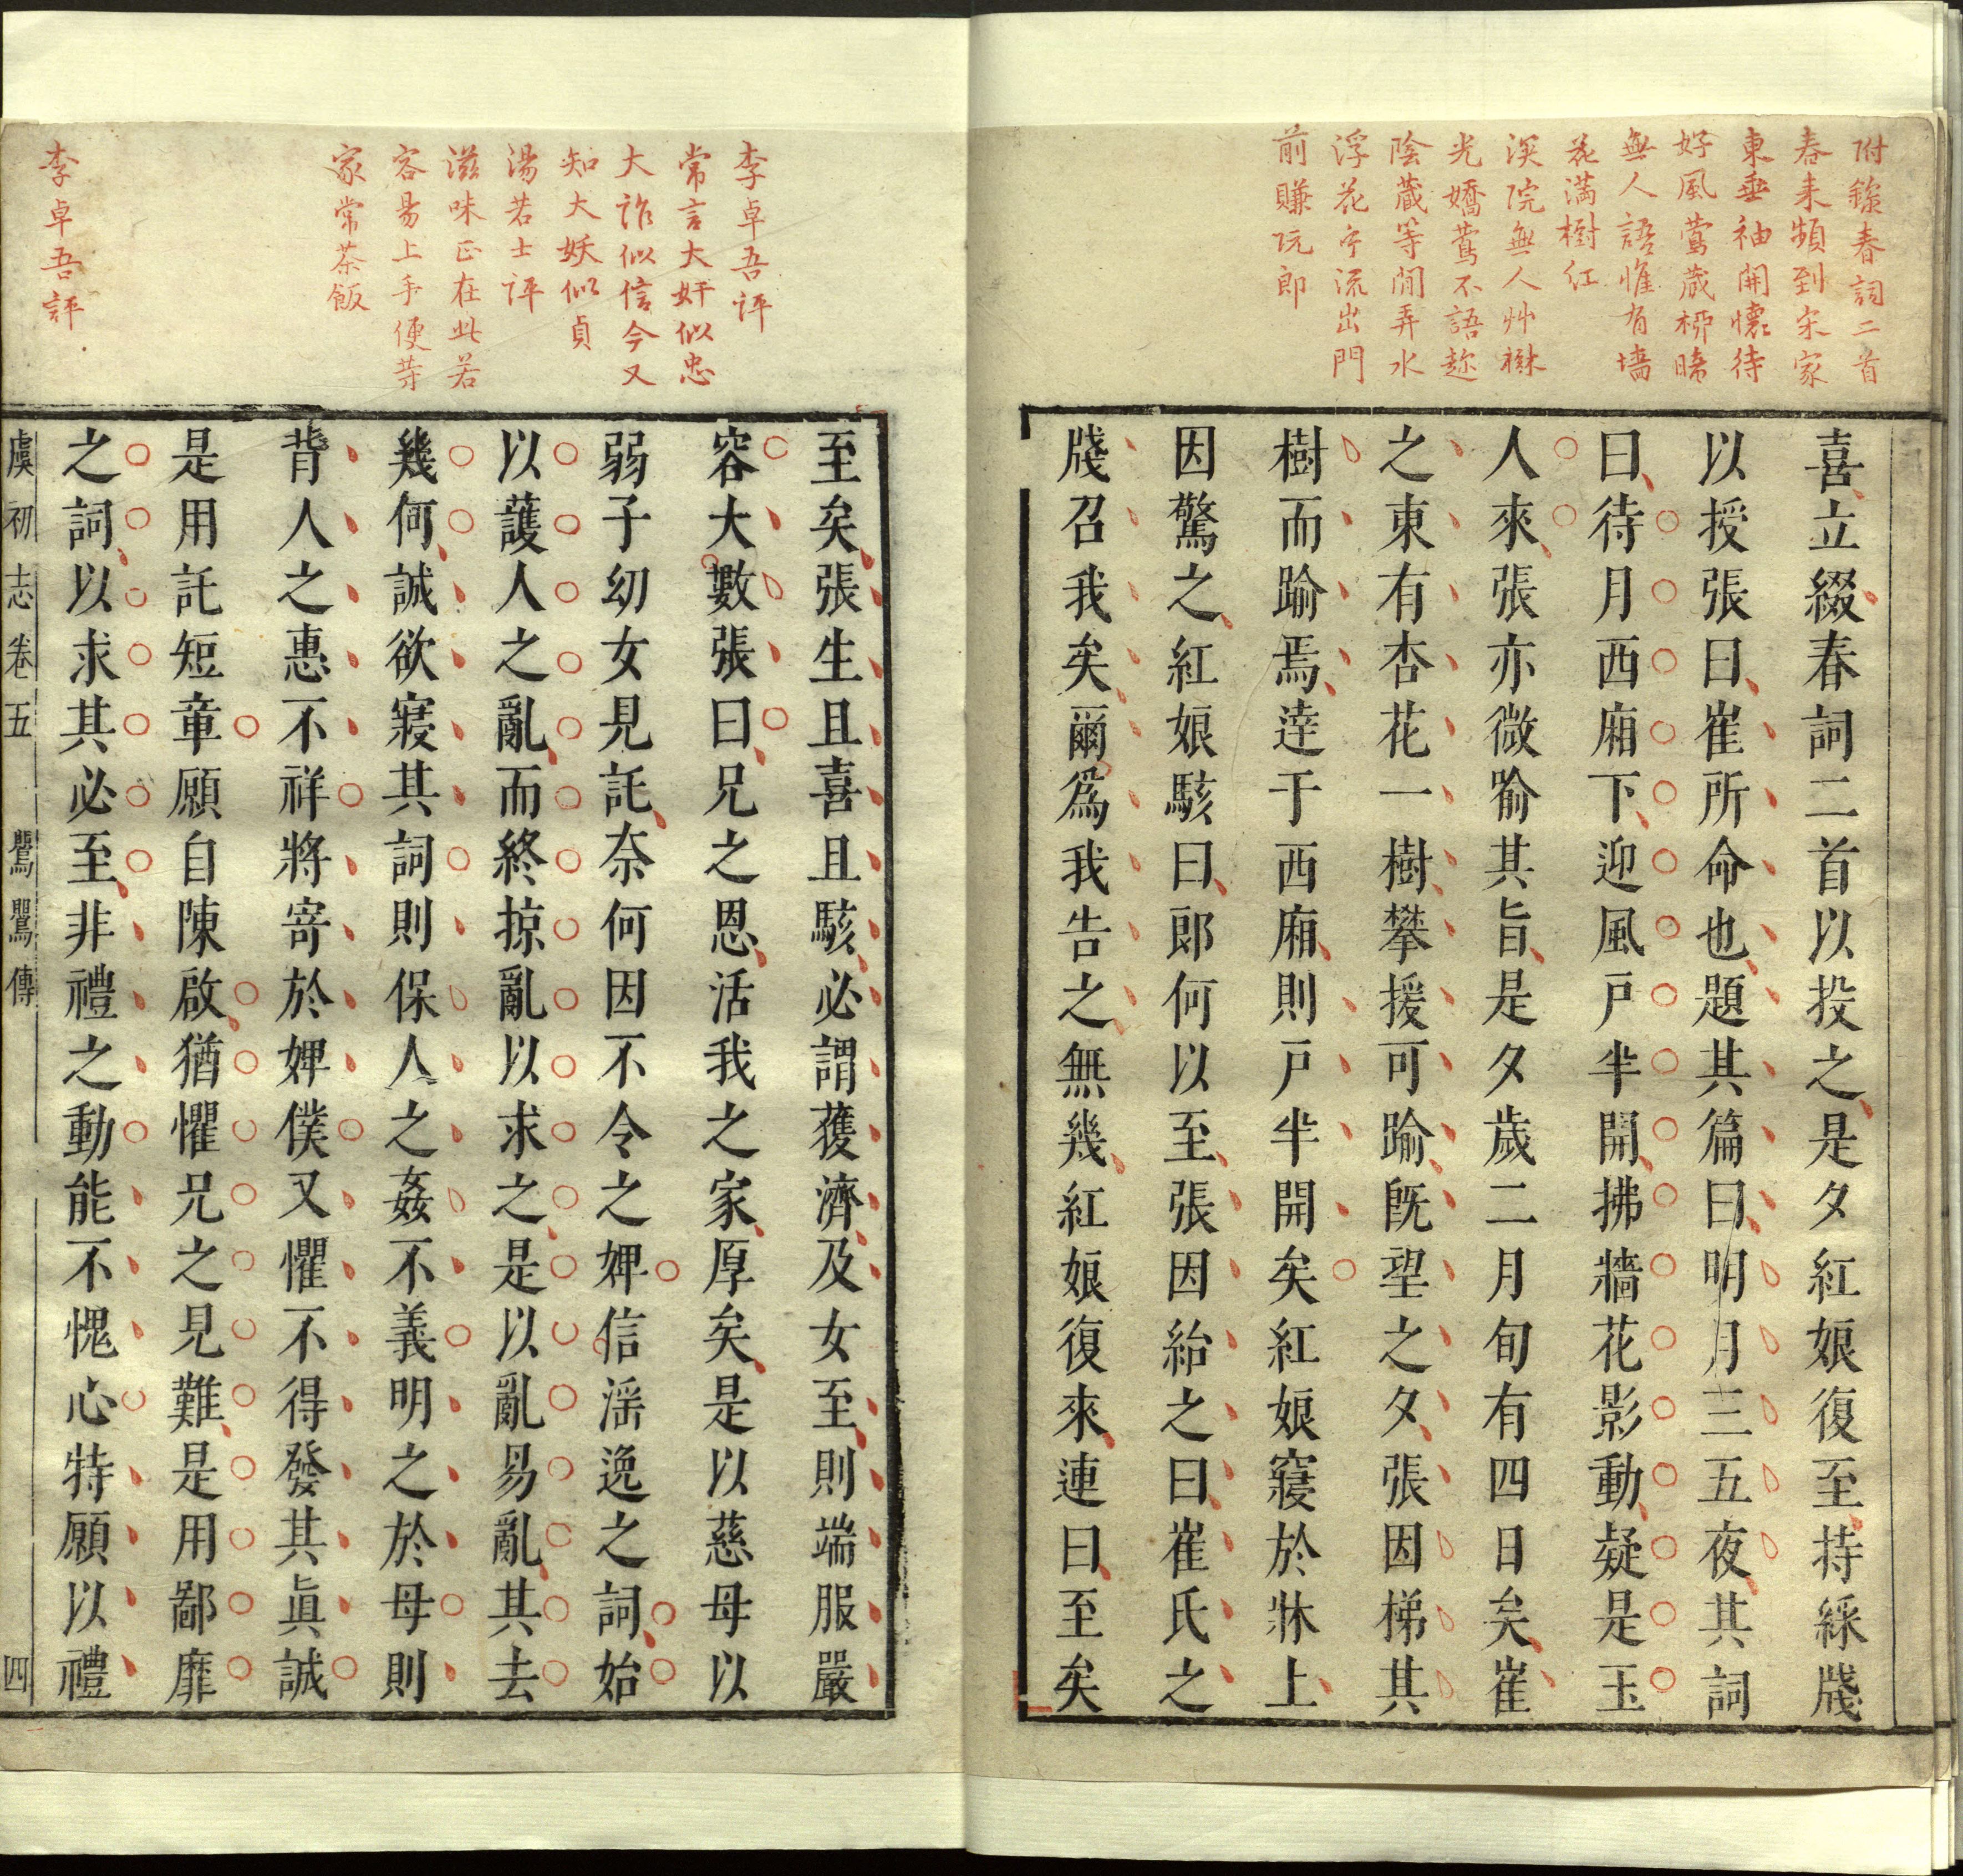 附錄春詞二首
春來頻到宋家
東垂袖開懷待
好風鶯藏柳暗
無人語惟有墻
花滿樹紅
深院無人艸樹
光嬌鶯不語趂
陰藏等閒弄水
浮花片流出門
前賺阮郎
喜立綴春詞二首以投之是夕紅娘復至持綵牋
以授張曰崔所命也題其篇曰明月三五夜其詞
曰待月西廂下迎風戶半開拂牆花影動疑是玉
人來張亦微喻其旨是夕歲二月旬有四日矣崔
之東有杏花一樹攀援可踰旣望之夕張因梯其
樹而踰焉達于西廂則戶半開矣紅娘寢於牀上
因驚之紅娘駭曰郎何以至張因紿之曰崔氏之
牋召我矣爾爲我告之無幾紅娘復來連曰至矣
李卓吾評
常言大奸似忠
大詐似信今又
知大妖似貞
湯若士評
滋味正在此若
容易上手便等
家常茶飯
李卓吾評
至矣張生且喜且駭必謂獲濟及女至則端服嚴
容大數張曰兄之恩活我之家厚矣是以慈母以
弱子幼女見託奈何因不令之婢信滛逸之詞始
以護人之亂而終掠亂以求之是以亂易亂其去
幾何誠欲寢其詞則保人之姦不義明之於母則
背人之惠不祥將寄於婢僕又懼不得發其眞誠
是用託短章願自陳啟猶懼兄之見難是用鄙靡
之詞以求其必至非禮之動能不愧心特願以禮
虞初志卷五 鸎鸎傳 四